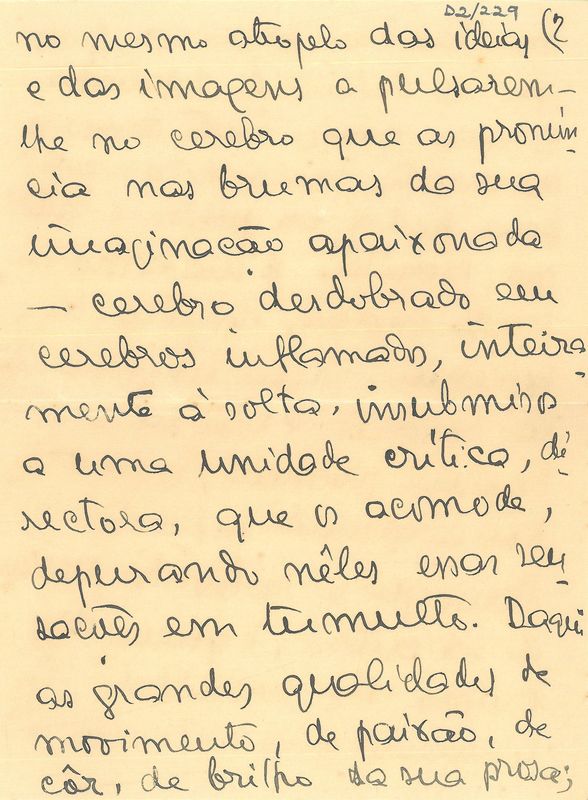 D2/229
no mesmo atropelo das ideias (2
e das imagens a pulsarem-
lhe no cerebro que as pronún-
cia nas brumas da sua
imaginacão apaixonada
— cerebro desdobrado em
cerebros inflamados, inteira-
mente à solta, insubmisso
a uma unidade crítica, di-
rectora, que os acomode,
depurando nêles essas sen
sacões em tumulto. Daqui
as grandes qualidades de
movimento, de paixão, de
côr, de brilho da sua prosa;